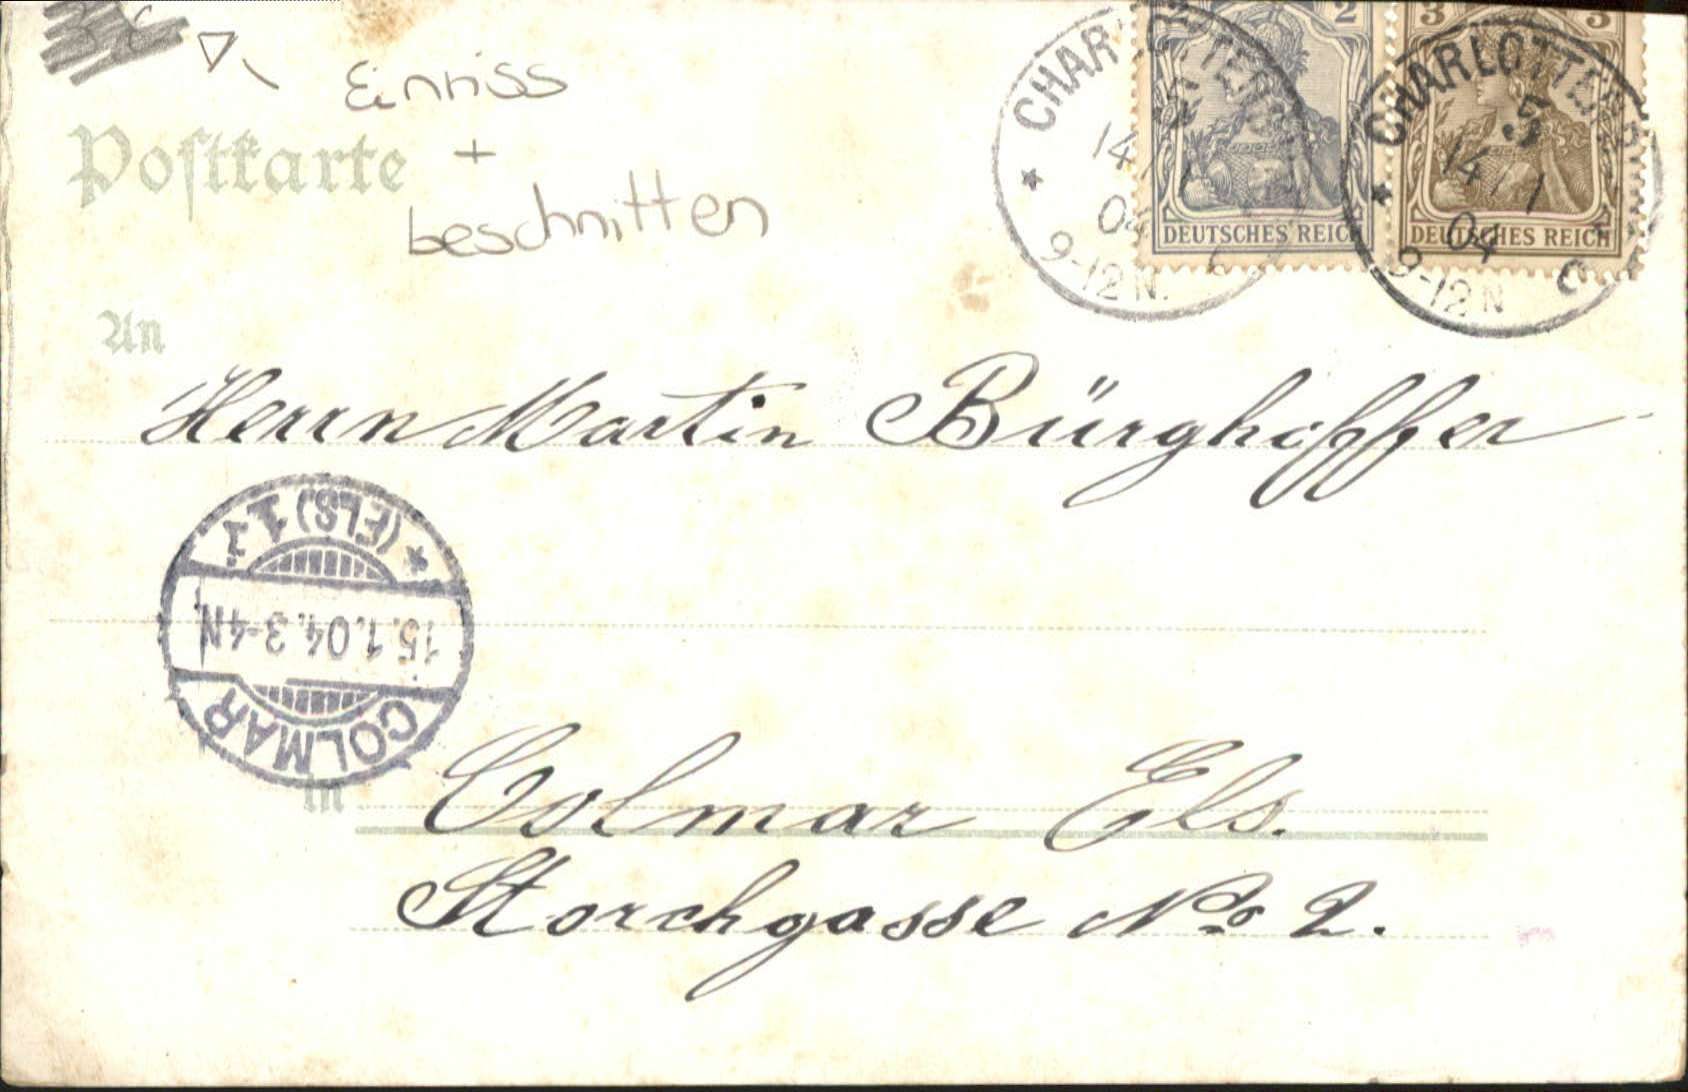 Einriss
+
beschnitten
Postkarte
2 3 3
DEUTSCHES REICH DEUTSCHES REICH
CHARLOTTENBURG
14/1
04
9-12N.
CHARLOTTENBURG
5
14/1
04
9-12N
C
An
Herrn Martin Bürghoffer
COLMAR
15.1.04.3-4N
* (ELS) 1
in Colmar Els.
Storchgasse No 2.